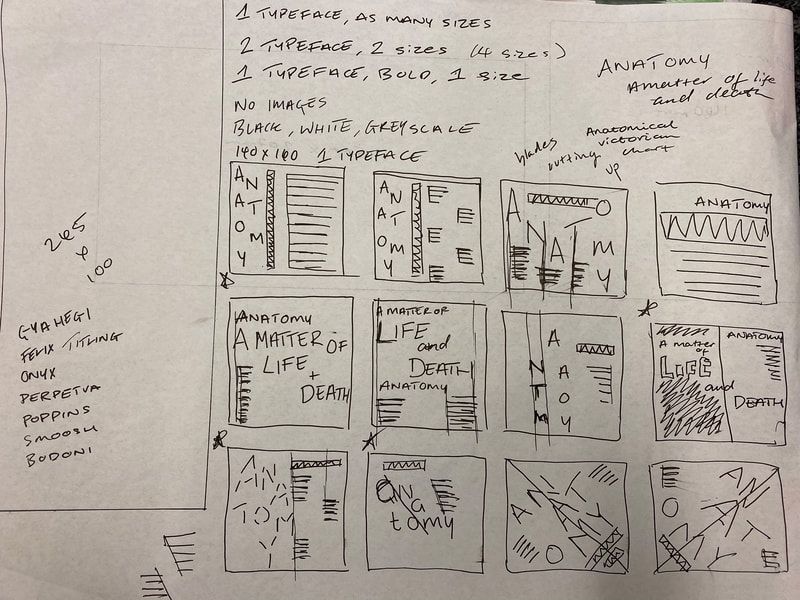 1 TYPEFACE, AS MANY SIZES
2 TYPEFACE, 2 sizes (4 sizes)
1 TYPEFACE, BOLD, 1 size
NO IMAGES
BLACK, WHITE, GREYSCALE
140 x 140 1 TYPEFACE
ANATOMY
A matter of life
and death
blades
cutting
up
Anatomical
victorian
chart
265
100
GYAHEGI
FELIX TITLING
ONYX
PERPETVA
POPPINS
SMOOSH
BODONI
ANATOMY
ANATOMY
ANATOMY
ANATOMY
ANATOMY
A MATTER OF
LIFE
+ DEATH
A MATTER OF
LIFE
and
DEATH
ANATOMY
ANTMAOY
A matter
of
LIFE
and
ANATOMY
DEATH
ANATOMY
ana
tomy
ANATOMY
ANATOMY